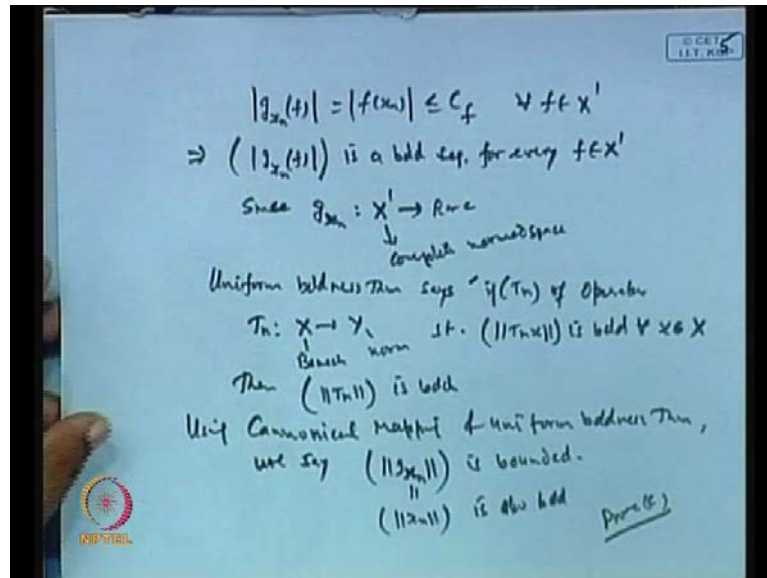 © CET
I.I.T. KGP
5
|g_{x_n}(f)| = |f(x_n)| ≤ C_f ∀ f ∈ X'
⇒ (|g_{x_n}(f)|) is a bdd seq. for every f ∈ X'
Since g_{x_n} : X' → R or C
↓
complete normed space
Uniform bddness Thm says "if (T_n) of Operator
T_n : X → Y, st. (||T_n x||) is bdd ∀ x ∈ X
Banach norm
Then (||T_n||) is bdd
Using Cannonical Mapping & Uniform bddness Thm,
we say (||g_{x_n}||) is bounded.
||
(||x_n||) is also bdd
NPTEL